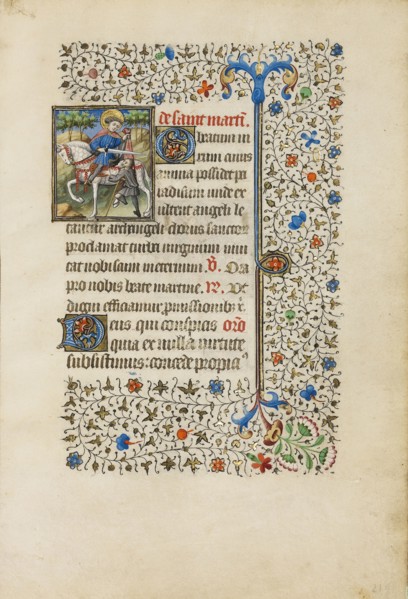 de saint martī.
O beatum vi
rum cuius
anima possidet pa
radisum unde ex
ultent angeli le
tantur archangeli chorus sanctor
proclamat turba virginum invi
tat nobiscum ineternum. V. Ora
pro nobis beate martine. R. Ut
digni efficiamur promissionib x
Deus qui conspicis oro
quia ex nulla virtute
subsistimus: concede propici